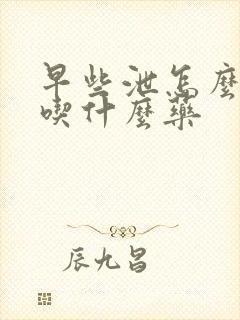 早些泄怎麼
喫什麼藥
辰九昌